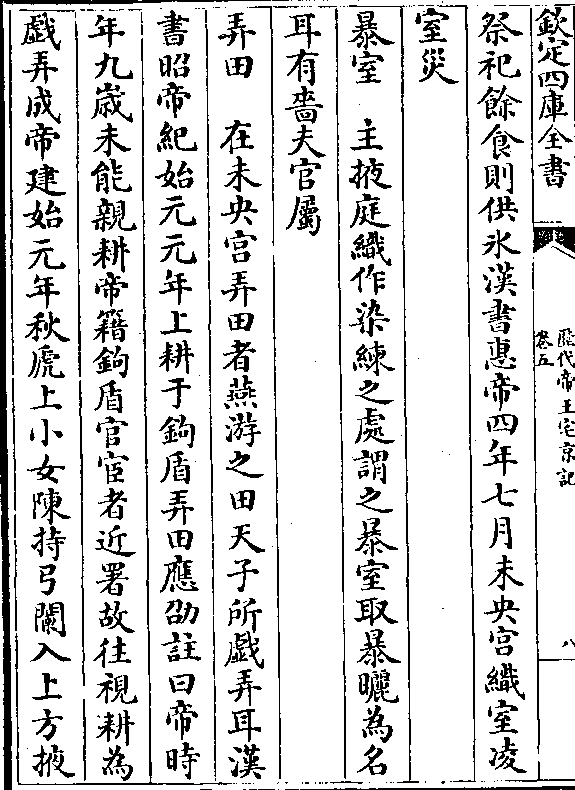 欽定四庫全書
歷代帝王宅京記
卷五
八
祭祀餘食則供氷漢書惠帝四年七月未央宫織室凌
室災
暴室　主掖庭織作染練之處謂之暴室取暴曬為名
耳有嗇夫官屬
弄田　在未央宫弄田者燕游之田天子所戲弄耳漢
書昭帝紀始元元年上耕于鉤盾弄田應劭註曰帝時
年九歲未能親耕帝籍鉤盾官宦者近署故往視耕為
戲弄成帝建始元年秋虒上小女陳持弓闌入上方掖